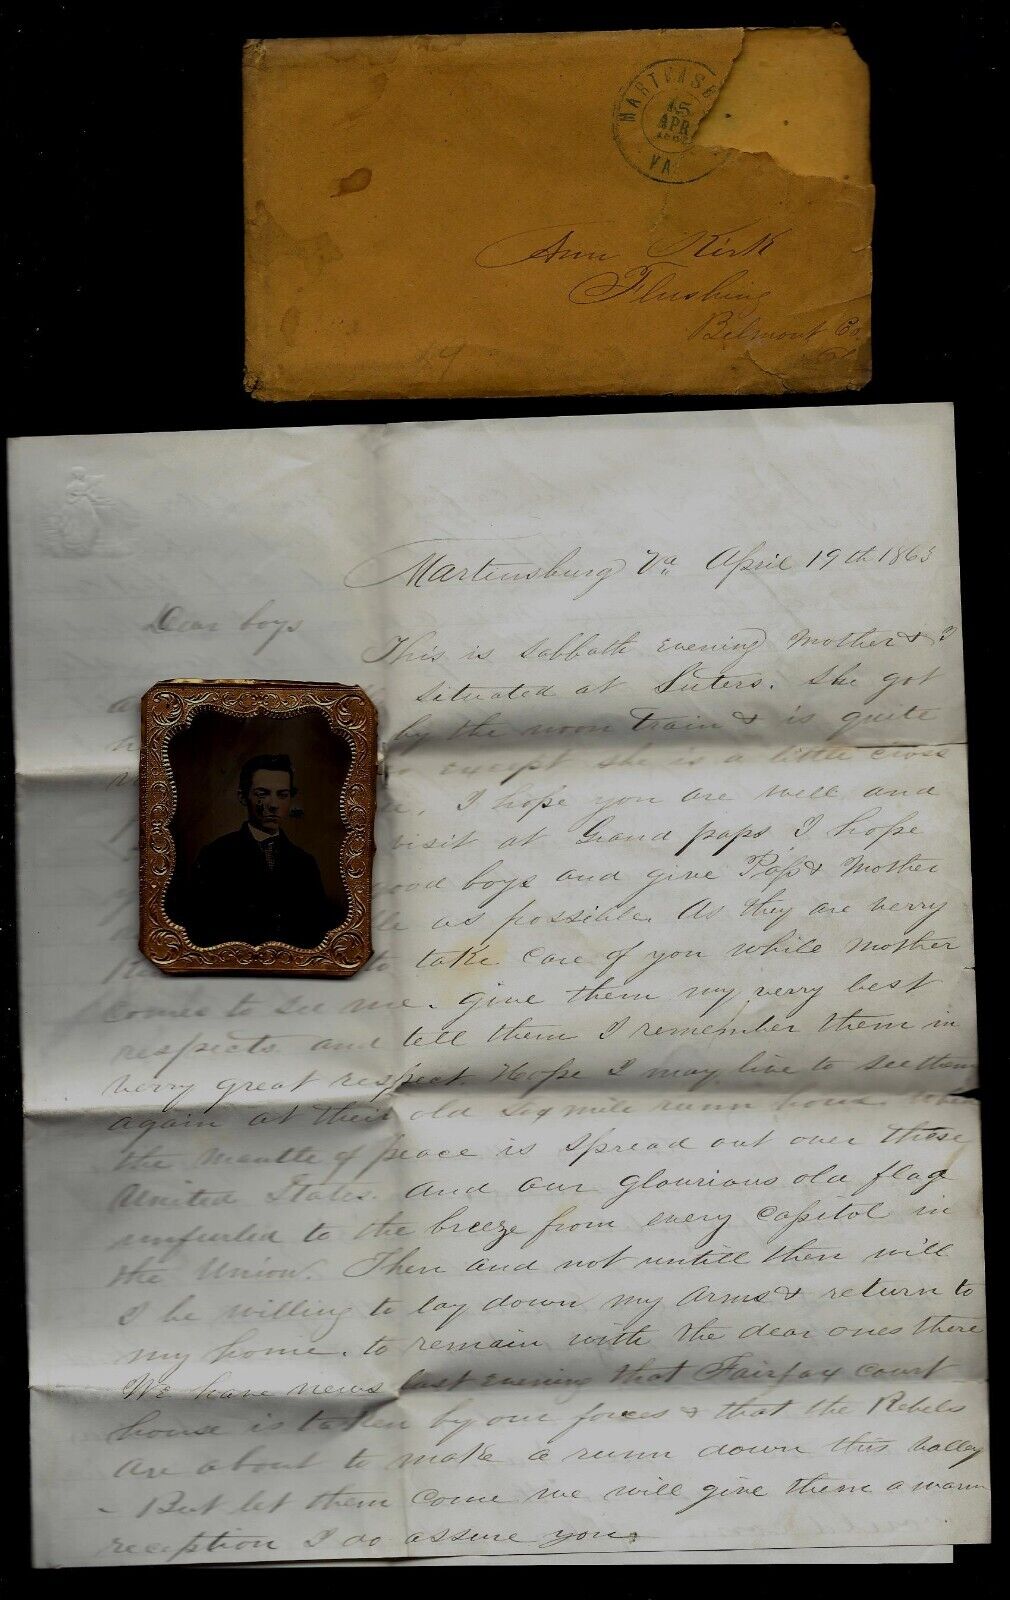 MARTENSB
15
APR
186
VA
Ann Kirk
Flushing
Belmont Co
29
Martensburg Va April 19th 1863
Dear boys
This is Sabbath evening Mother & I
situated at Suters. She got
by the noon train & is quite
except she is a little cross
I hope you are well and
visit at Grand paps I hope
good boys and give Pap & Mother
as possible. As they are verry
to take care of you while Mother
comes to see me. Give them my verry best
respects and tell them I remember them in
verry great respect. Hope I may live to see them
again at their old Six mile runn
the mantle of peace is spread out over these
United States. And our glourious old flag
unfurled to the breeze from every Capitol in
the Union. Then and not untill then will
I be willing to lay down my arms & return to
my home. to remain with the dear ones there
We have news last evening that Fairfax court
house is taken by our forces & that the Rebels
are about to make a runn down this valley
- But let them come we will give them a warm
reception I do assure you.